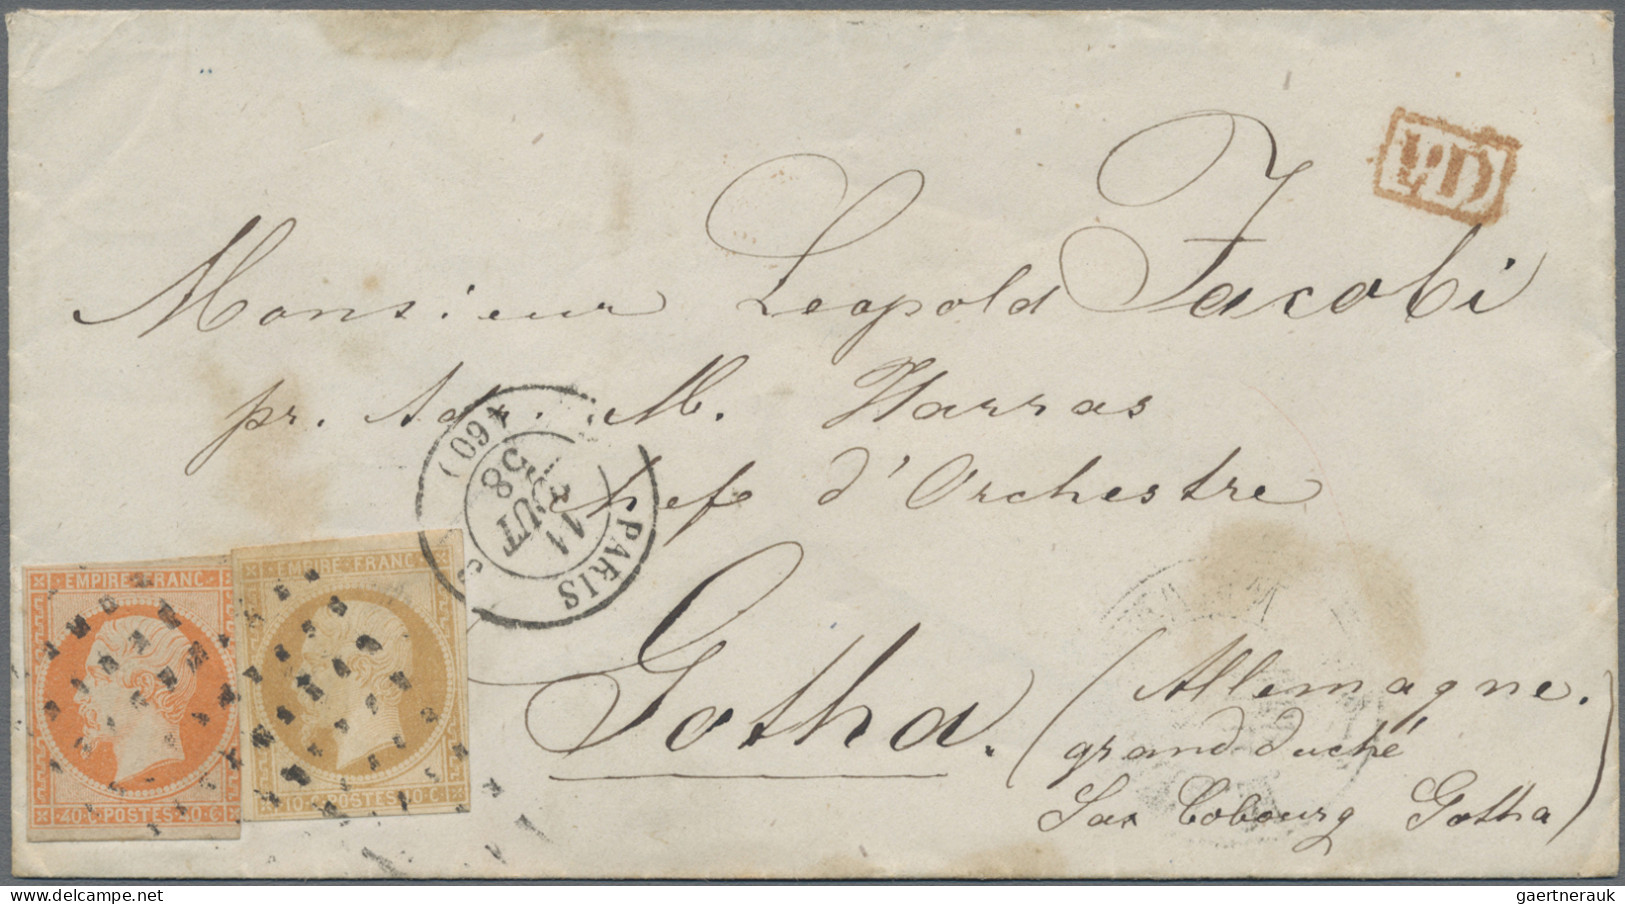 PD
Monsieur Leopold Jacobi
pr. Adr. M. Harras
Chef d'Orchestre
Gotha. (Allemagne.
grand duché
Sax Cobourg Gotha)
PARIS
11
AOUT
58
(60)
EMPIRE FRANC
40 C POSTES 40 C
EMPIRE FRANC
10 C POSTES 10 C
gaertnerauk